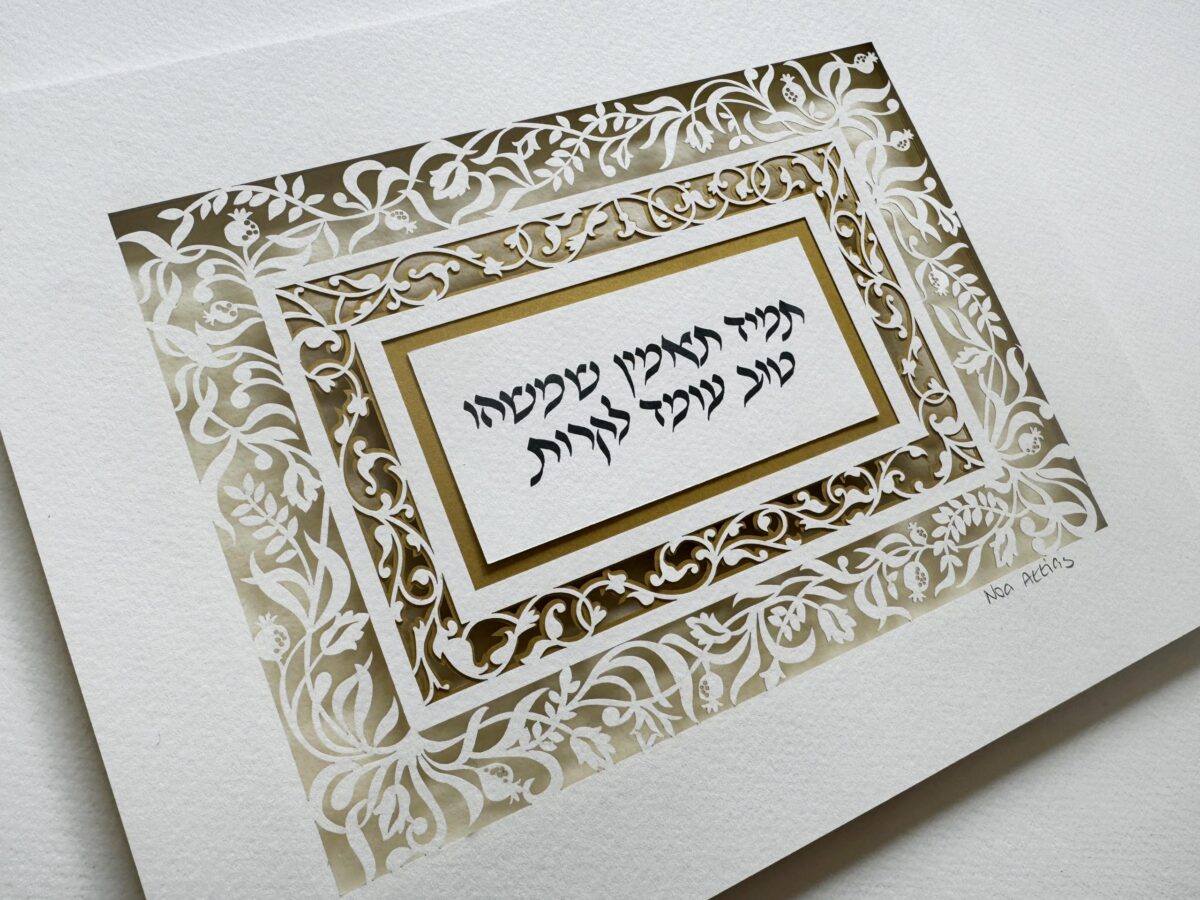 תמיד תאמין שמשהו
טוב עומד לקרות
Noa Attias